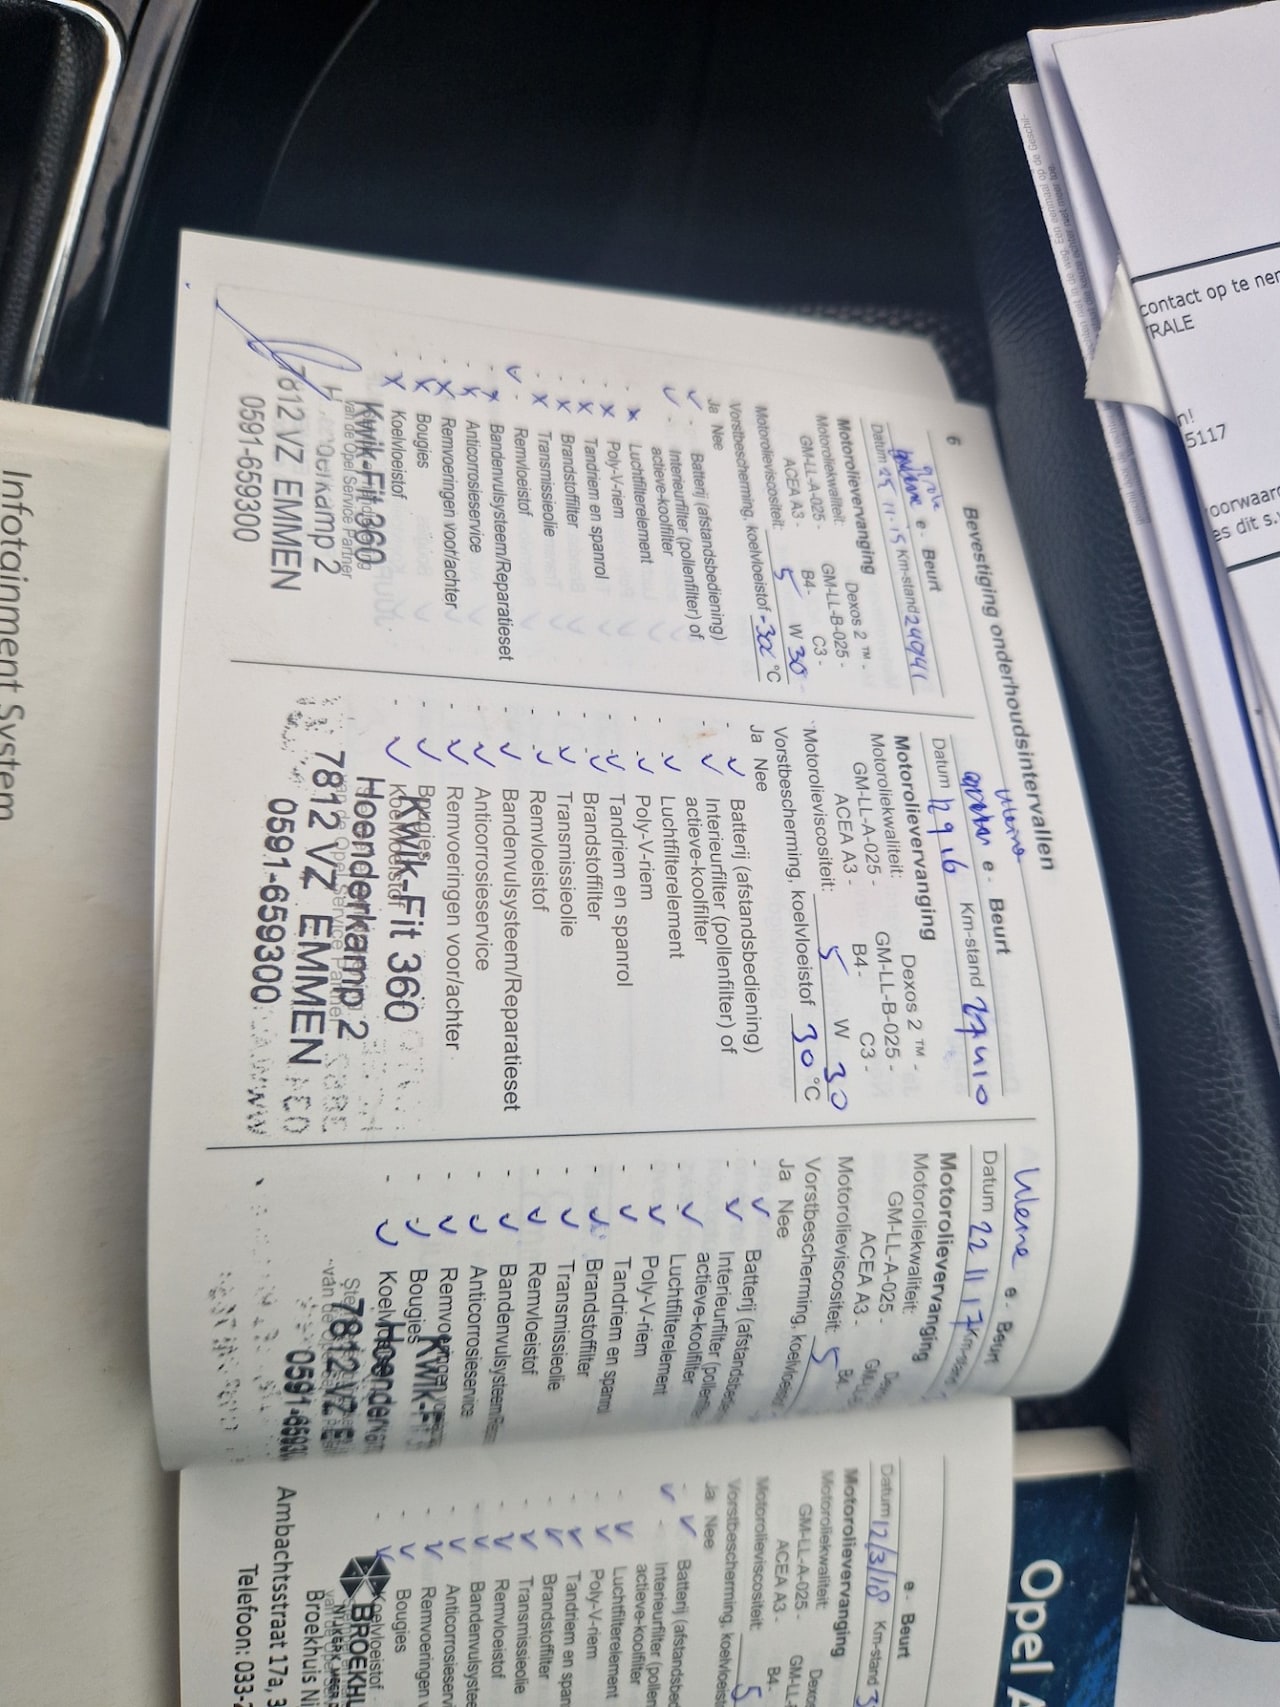 6
Bevestiging onderhoudsintervallen
grote
e - Beurt
Datum 25 11-15 Km-stand
Motorolievervanging
Motoroliekwaliteit: Dexos 2 ™ -
GM-LL-A-025 - GM-LL-B-025 -
ACEA A3 - B4- C3 -
Motorolieviscositeit: 5 W 30
Vorstbescherming, koelvloeistof -32 °C
Ja Nee
Batterij (afstandsbediening)
Interieurfilter (pollenfilter) of
actieve-koolfilter
Luchtfilterelement
Poly-V-riem
Tandriem en spanrol
Brandstoffilter
Transmissieolie
Remvloeistof
Bandenvulsysteem/Reparatieset
Anticorrosieservice
Remvoeringen voor/achter
Bougies
Koelvloeistof
Kwik-Fit 360
van de Opel Service Partner
7812 VZ EMMEN
0591-659300
kleine
e - Beurt
Datum 12 9 16 Km-stand 27410
Motorolievervanging
Motoroliekwaliteit: Dexos 2 ™ -
GM-LL-A-025 - GM-LL-B-025 -
ACEA A3 - B4- C3 -
Motorolieviscositeit: 5 W 30
Vorstbescherming, koelvloeistof 30 °C
Ja Nee
Batterij (afstandsbediening)
Interieurfilter (pollenfilter) of
actieve-koolfilter
Luchtfilterelement
Poly-V-riem
Tandriem en spanrol
Brandstoffilter
Transmissieolie
Remvloeistof
Bandenvulsysteem/Reparatieset
Anticorrosieservice
Remvoeringen voor/achter
Bougies
Koelvloeistof
Kwik-Fit 360
Hoenderkamp 2
van de Opel Service Partner
7812 VZ EMMEN
0591-659300
kleine e - Beurt
Datum 22 11 17 Km-stand
Motorolievervanging
Motoroliekwaliteit:
GM-LL-A-025 -
ACEA A3 - B4
Motorolieviscositeit: 5
Vorstbescherming, koelvloeistof
Ja Nee
Batterij (afstandsbe
Interieurfilter (pollen
actieve-koolfilter
Luchtfilterelement
Poly-V-riem
Tandriem en spanrol
Brandstoffilter
Transmissieolie
Remvloeistof
Bandenvulsysteem
Anticorrosieservice
Remvoeringen
Bougies
Koelvloeistof
Kwik-F
Hoenderkam
7812 VZ E
0591-6593
e - Beurt
Datum 12/3/18 Km-stand 3
Motorolievervanging
Motoroliekwaliteit: Dexos
GM-LL-A-025 - GM-LL-
ACEA A3 - B4-
Motorolieviscositeit: 5
Vorstbescherming, koelvloeist
Ja Nee
Batterij (afstandsbed
Interieurfilter (pollen
actieve-koolfilter
Luchtfilterelement
Poly-V-riem
Tandriem en span
Brandstoffilter
Transmissieolie
Remvloeistof
Bandenvulsystee
Anticorrosieserv
Remvoeringen v
Bougies
Koelvloeistof
BROEKHU
Broekhuis Ni
Ambachtsstraat 17a, 3
Telefoon: 033-2
Opel A
Infotainment System
contact op te ner
TRALE
n!
5117
oorwaard
es dit s.v